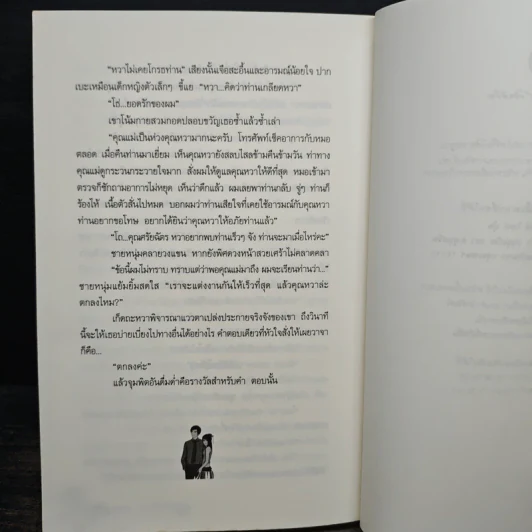 "หวาไม่เคยโกรธท่าน" เสียงนั้นเจือสะอื้นและอารมณ์น้อยใจ ปาก
เบะเหมือนเด็กหญิงตัวเล็กๆ ขี้แย "หวา...คิดว่าท่านเกลียดหวา"
"โธ่...ยอดรักของผม"
เขาโน้มกายสวมกอดปลอบขวัญเธอซ้ำแล้วซ้ำเล่า
"คุณแม่เป็นห่วงคุณหวามากนะครับ โทรศัพท์เช็คอาการกับหมอ
ตลอด เมื่อคืนท่านมาเยี่ยม เห็นคุณหวายังสลบไสลข้ามคืนข้ามวัน ท่าทาง
คุณแม่ดูกระวนกระวายใจมาก สั่งผมให้ดูแลคุณหวาให้ดีที่สุด หมอเข้ามา
ตรวจก็ซักถามอาการไม่หยุด เห็นว่าดึกแล้ว ผมเลยพาท่านกลับ จู่ๆ ท่านก็
ร้องไห้ เนื้อตัวสั่นไปหมด บอกผมว่าท่านเสียใจที่เคยใช้อารมณ์กับคุณหวา
ท่านอยากขอโทษ อยากได้ยินว่าคุณหวาให้อภัยท่านแล้ว"
"โถ...คุณศรัยฉัตร หวาอยากพบท่านเร็วๆ จัง ท่านจะมาเมื่อไหร่คะ"
ชายหนุ่มคลายวงแขน หากยังพิศดวงหน้าสวยเศร้าไม่คลาดคลา
"ข้อนี้ผมไม่ทราบ ทราบแต่ว่าพอคุณแม่มาถึง ผมจะเรียนท่านว่า..."
ชายหนุ่มแย้มยิ้มสดใส "เราจะแต่งงานกันให้เร็วที่สุด แล้วคุณหวาล่ะ
ตกลงไหม?"
เกิดถะหวาพิจารณาแววตาเปล่งประกายจริงจังของเขา ถึงวินาที
นี้จะให้เธอบ่ายเบี่ยงไปทางอื่นได้อย่างไร คำตอบเดียวที่หัวใจสั่งให้เผยวาจา
ก็คือ...
"ตกลงค่ะ"
แล้วจุมพิตอันดื่มด่ำคือรางวัลสำหรับคำ ตอบนั้น